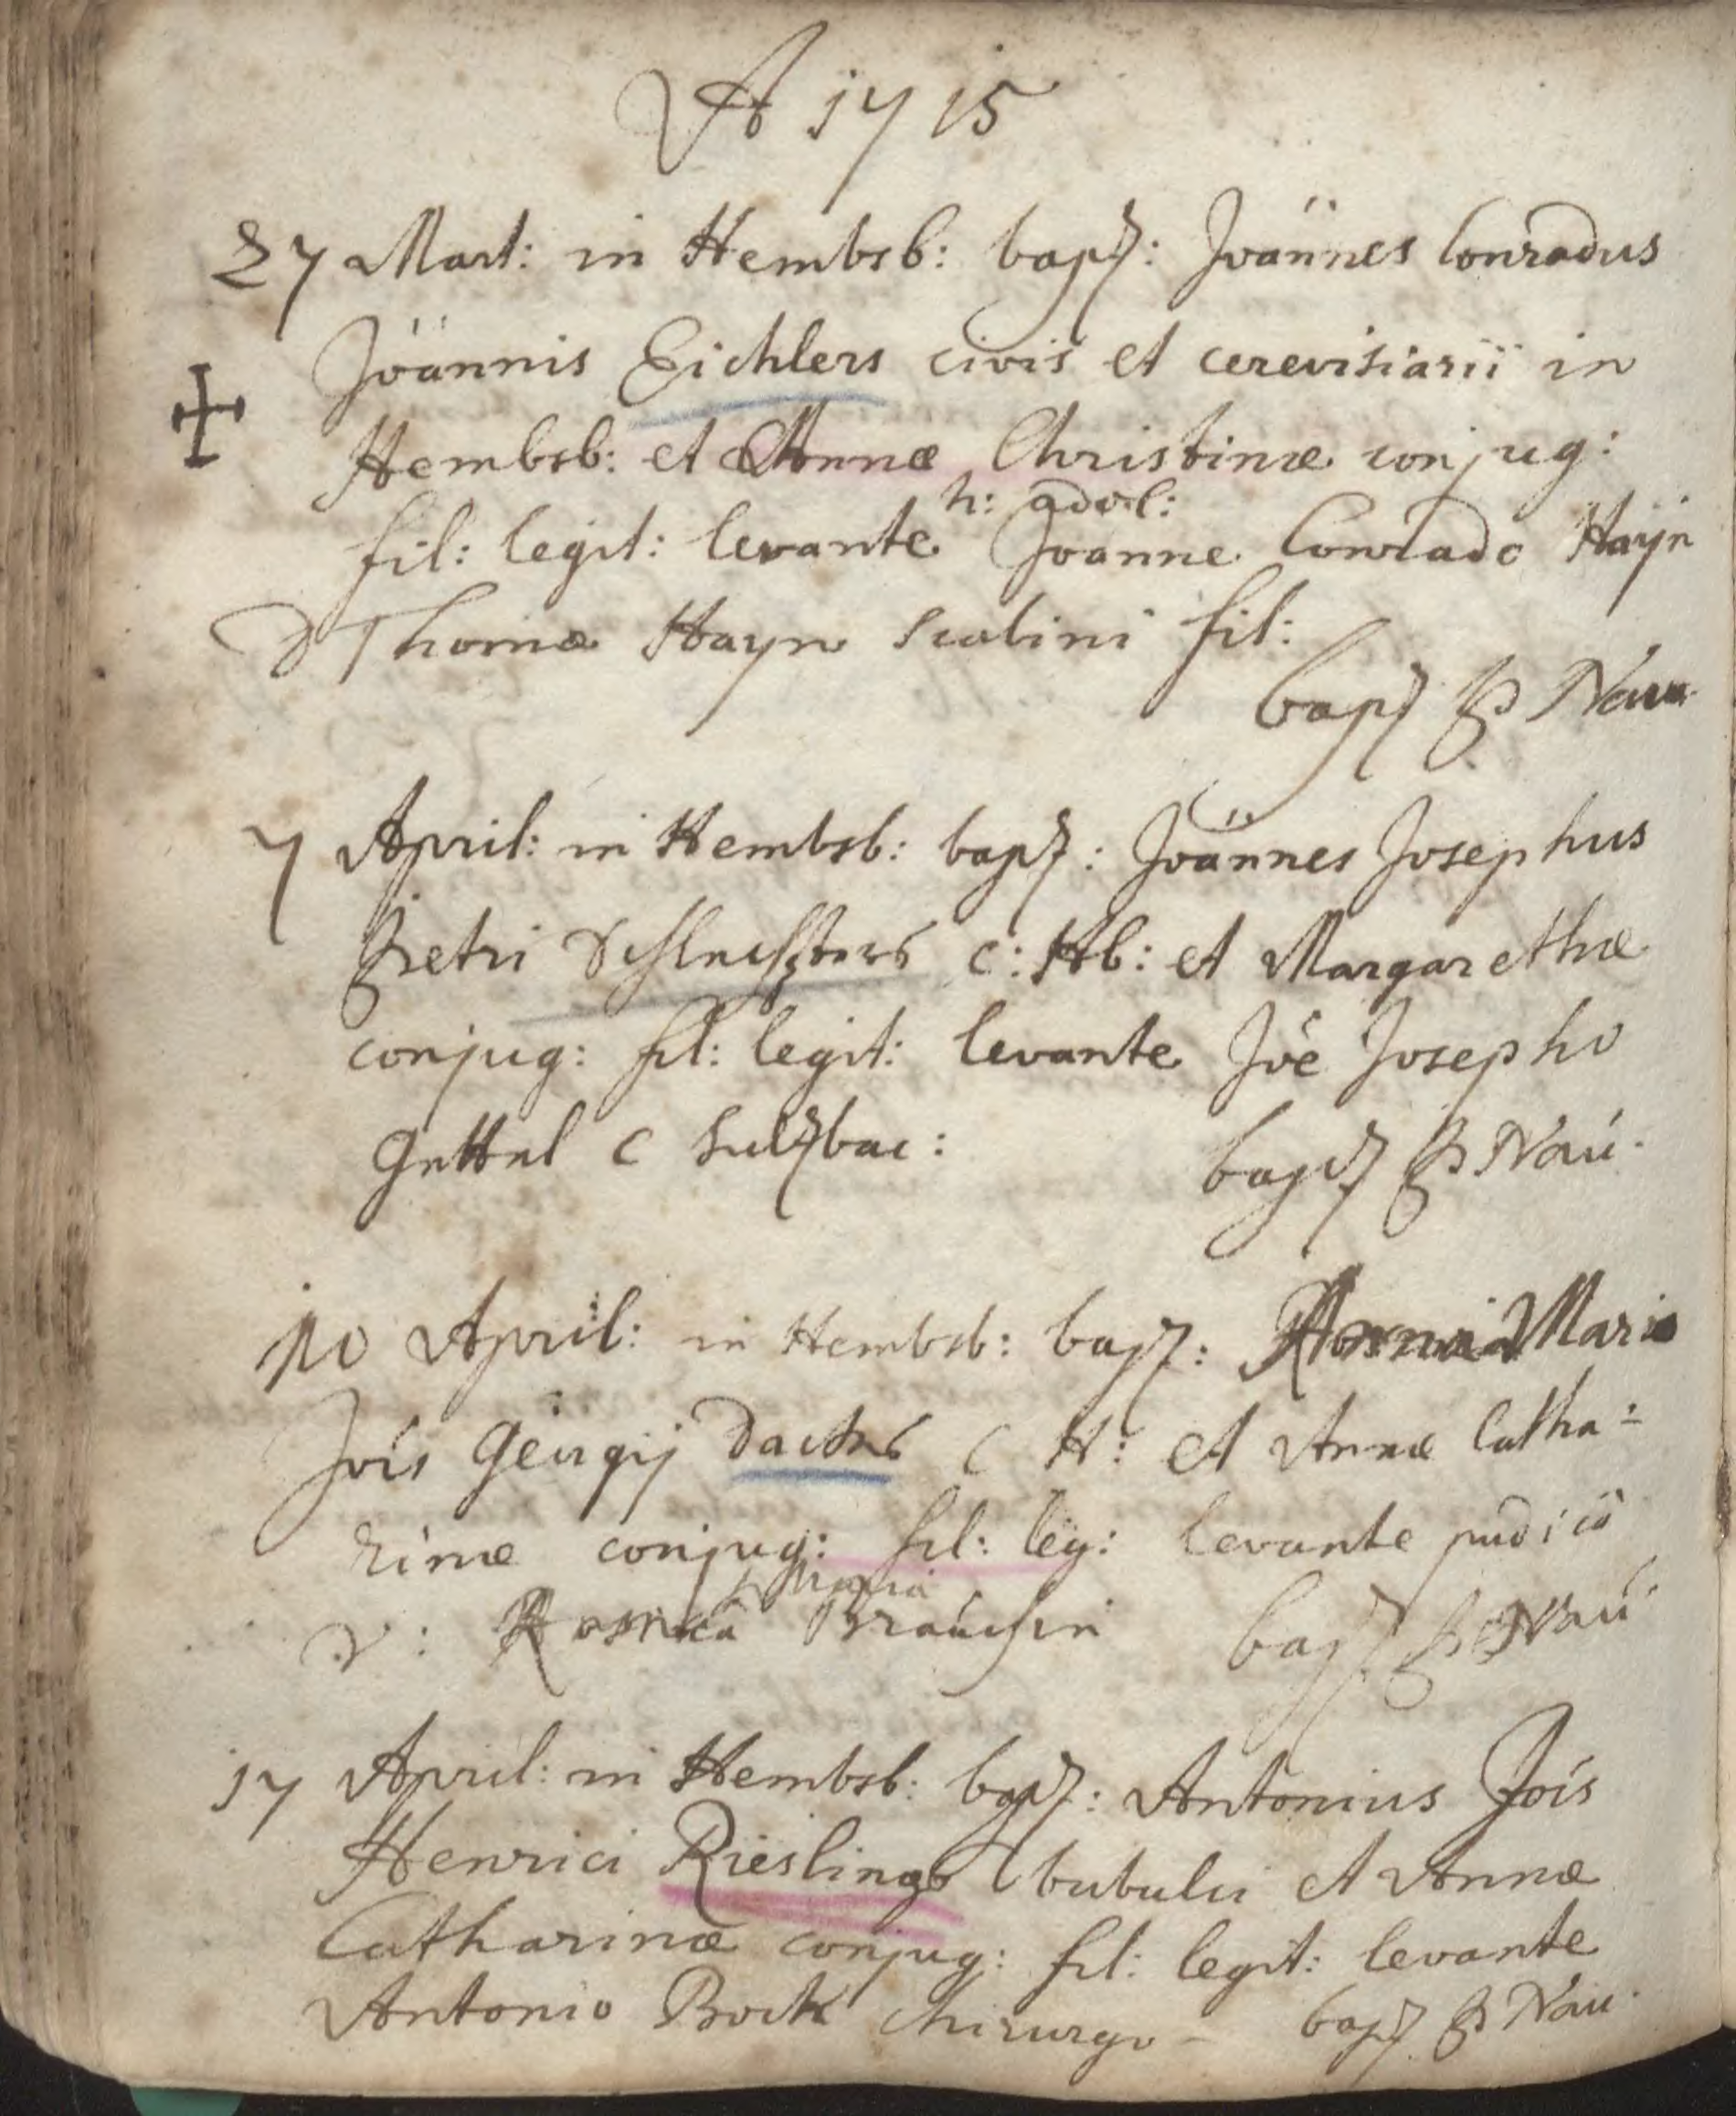 A 1715
27 Mart: in Hembsb: bapt: Joännes Conradus
Joännis Eichlers civis et cerevisiarii in
Hembsb: et Annæ Christinæ conjug:
h: adol:
fil: legit: levante Joanne Conrado Hayn
D Thomæ Hayn scabini fil:
bapt P Nau
7 April: in Hembsb: bapt: Joännes Josephus
Petri Schlechters c: Hb: et Margarethæ
conjug: fil: legit: levante Joe Josepho
Gettel c Sulzbac:
bapt P Nau
10 April: in Hembsb: bapt: Anna Maria
Jois Georgij Dachs c H: et Annæ Catha:
rinæ conjug: fil: leg: levante pudica
Maria
V: Brauchin bapt P Nau
17 April: in Hembsb: bapt: Antonius Jois
Henrici Rieslings bubulci et Annæ
Catharinæ conjug: fil: legit: levante
Antonio Bock Chirurgo - bapt P Nau